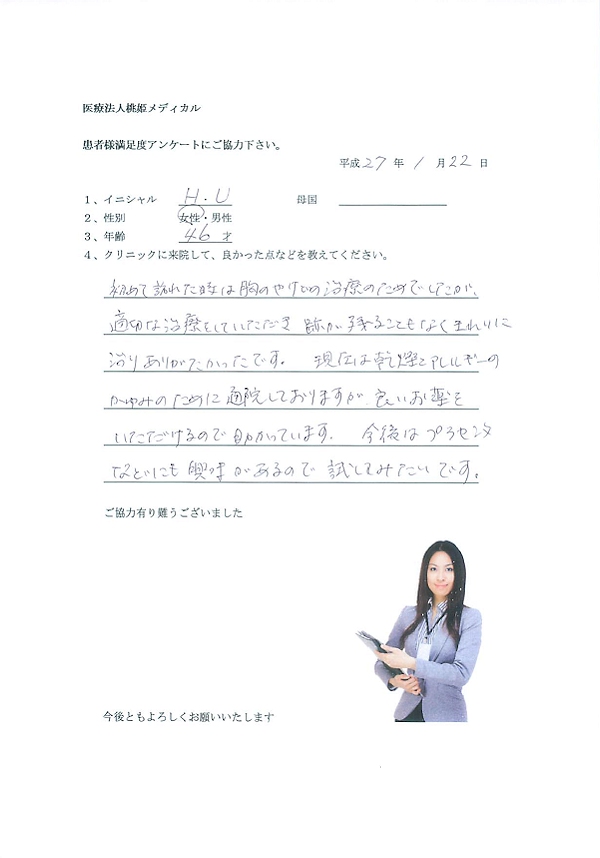 医療法人桃姫メディカル
患者様満足度アンケートにご協力下さい。
平成27年 1月22日
1、イニシャル H.U 母国
2、性別 女性・男性
3、年齢 46才
4、クリニックに来院して、良かった点などを教えてください。
初めて訪れた時は胸のやけどの治療のためでしたが、
適切な治療をしていただき 跡が残ることもなくきれいに
治りありがたかったです。 現在は乾燥とアレルギーの
かゆみのために通院しておりますが 良いお薬を
いただけるので助かっています。 今後はプラセンタ
などにも興味があるので試してみたいです。
ご協力有り難うございました
今後ともよろしくお願いいたします